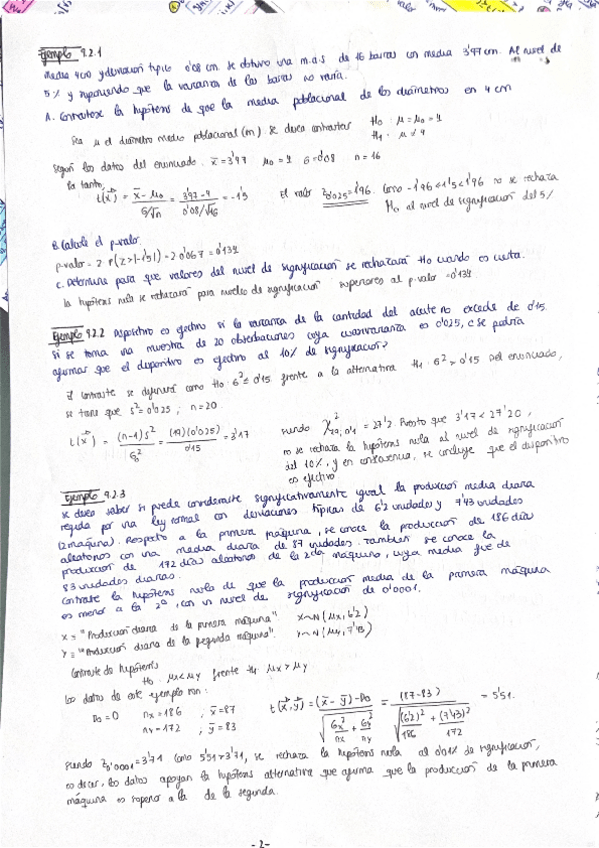 Ejemplo 9.2.1
Media 4'00 y desviación típica 0'08 cm. se obtuvo una m.a.s de 16 barras con media 3'97 cm. Al nivel de
5% y suponiendo que la varianza de las barras no varía.
A. Contrastar la hipótesis de que la media poblacional de los diámetros en 4 cm
Sea μ el diámetro medio poblacional (m). Se desea contrastar H₀: μ = μ₀ = 4
H₁: μ ≠ 4
Según los datos del enunciado. x̄ = 3'97 μ₀ = 4 σ = 0'08 n = 16
Por lo tanto,
t(x⃗) = (x̄ - μ₀)/(σ/√n) = (3'97 - 4)/(0'08/√16) = -1'5 El valor z₀'₀₂₅ = 1'96. Como -1'96 < 1'5 < 1'96 no se rechaza
H₀ al nivel de significación del 5%
B. Calcule el p-valor.
p-valor = 2·P(Z > |-1'5|) = 2·0'067 = 0'134
C. Determine para que valores del nivel de significación se rechazará H₀ cuando es cierta.
La hipótesis nula se rechazará para niveles de significación superiores al p-valor = 0'134
Ejemplo 9.2.2 Dispositivo es efectivo si la varianza de la cantidad del aceite no excede de 0'15.
Si se toma una muestra de 20 observaciones cuya cuasivarianza es 0'025, ¿se podría
afirmar que el dispositivo es efectivo al 10% de significación?
El contraste se definirá como H₀: σ² ≤ 0'15 frente a la alternativa H₁: σ² > 0'15 Del enunciado,
se tiene que s² = 0'025; n = 20
t(x⃗) = (n-1)s²/σ₀² = (19)(0'025)/0'15 = 3'17 siendo χ²₁₉;₀'₁ = 27'2. Puesto que 3'17 < 27'20,
no se rechaza la hipótesis nula al nivel de significación
del 10%, y en consecuencia, se concluye que el dispositivo
es efectivo
Ejemplo 9.2.3
Se desea saber si puede considerarse significativamente igual la producción media diaria
regida por una ley normal con desviaciones típicas de 6'2 unidades y 7'43 unidades
(2 máquina). Respecto a la primera máquina, se conoce la producción de 186 días
aleatorios con una media diaria de 87 unidades. También se conoce la
producción de 172 días aleatorios de la 2da máquina, cuya media fue de
83 unidades diarias.
Contraste la hipótesis nula de que la producción media de la primera máquina
es menor a la 2ª, con un nivel de significación de 0'0001.
X = "Producción diaria de la primera máquina" X~N(μx, 6'2)
Y = "Producción diaria de la segunda máquina". Y~N(μy, 7'43)
Contraste de hipótesis
H₀: μx ≤ μy frente H₁: μx > μy
Los datos de este ejemplo son:
D₀ = 0 nx = 186 ; x̄ = 87
ny = 172 ; ȳ = 83
t(x⃗, y⃗) = ((x̄ - ȳ) - D₀)/√(σx²/nx + σy²/ny) = (87 - 83)/√((6'2)²/186 + (7'43)²/172) = 5'51.
siendo z₀'₀₀₀₁ = 3'71 como 5'51 > 3'71, se rechaza la hipótesis nula al 0'01% de significación,
es decir, los datos apoyan la hipótesis alternativa que afirma que la producción de la primera
máquina es superior a la de la segunda.
-2-